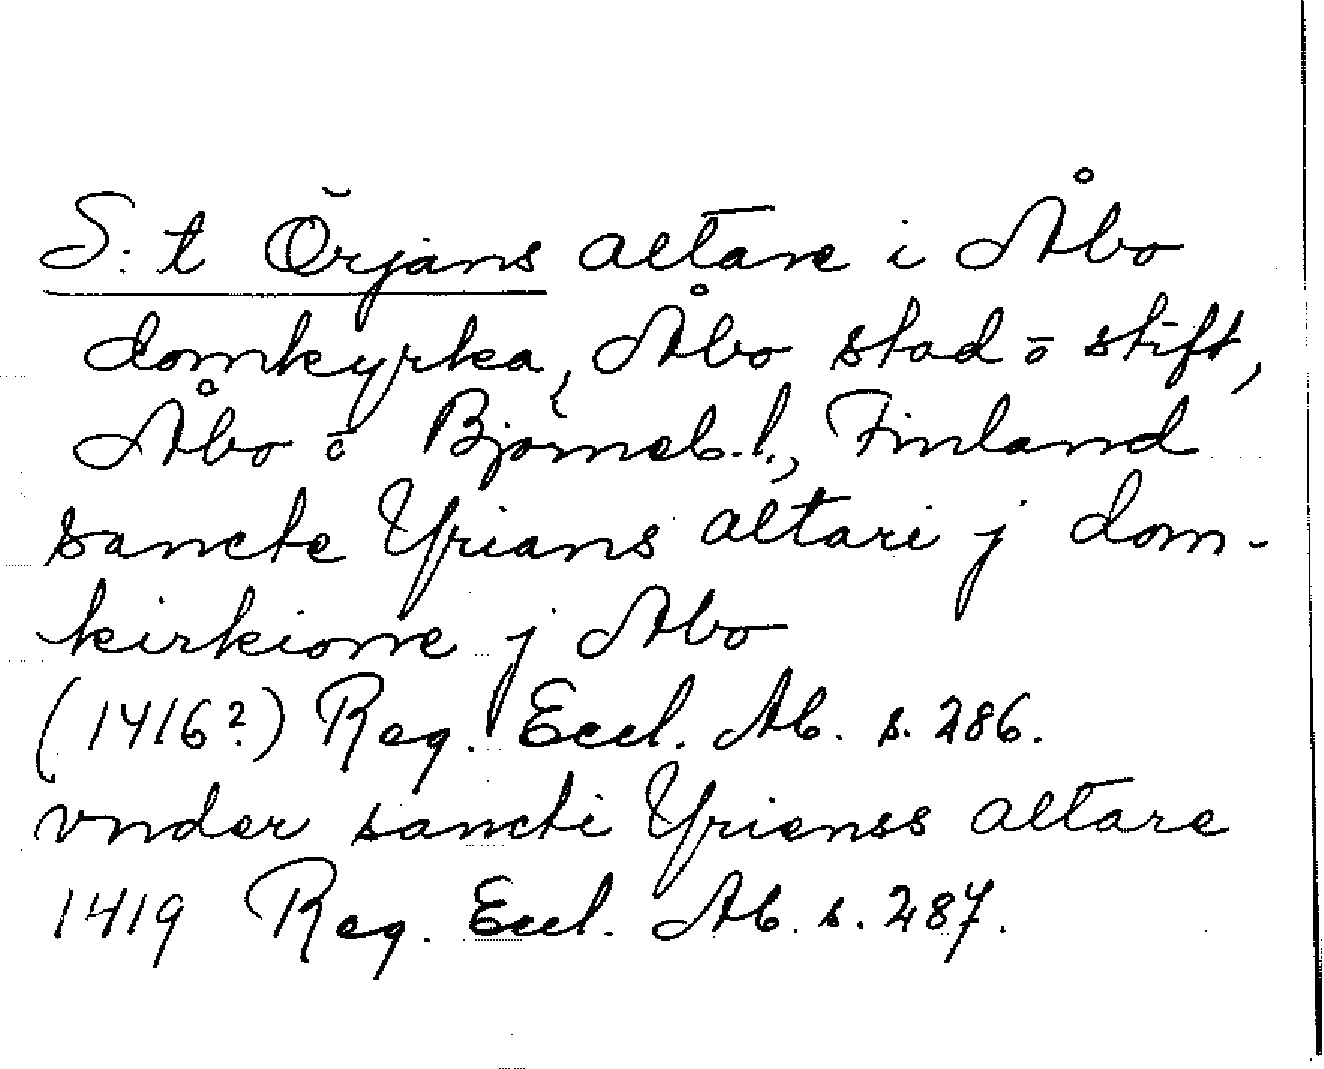 S:t Örjans altare i Åbo
domkyrka, Åbo stad o stift,
Åbo o Björneb. l., Finland
sancte Yrians altari j dom-
kirkionne j Abo
(1416?) Reg. Eccl. Ab. s. 286.
vnder sancti Yrienss altare
1419 Reg. Eccl. Ab. s. 287.